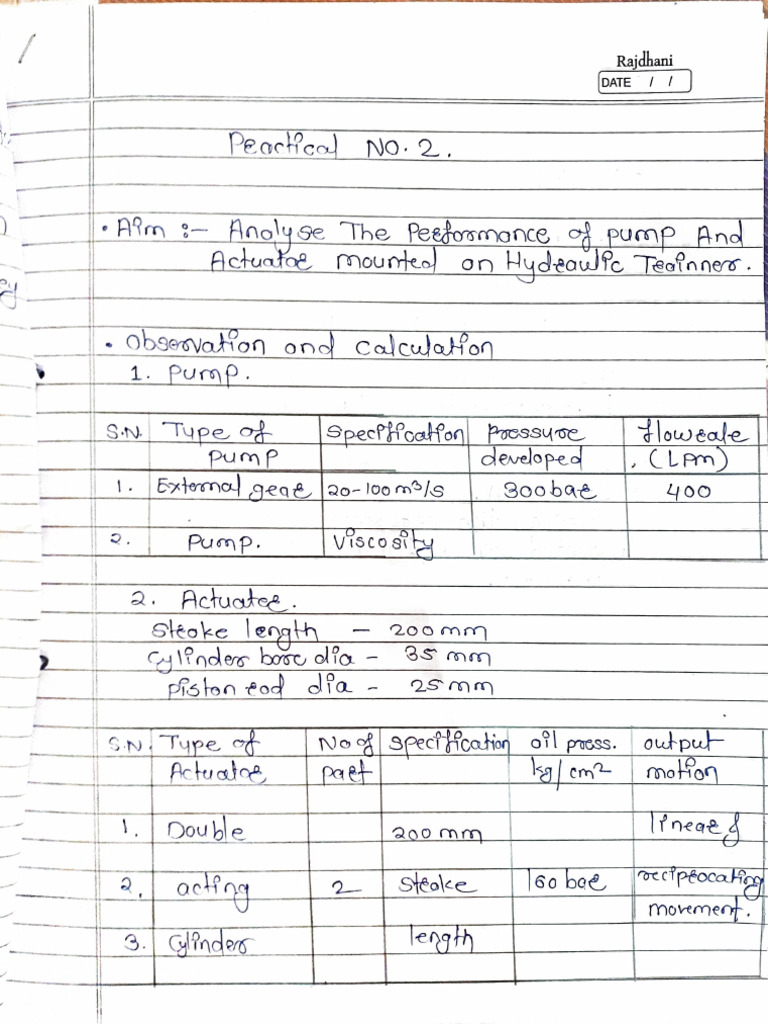 Rajdhani
DATE / /
Practical No. 2.
• Aim :- Analyse The Performance of pump And
Actuator mounted on Hydraulic Trainner.
• Observation and calculation
1. Pump.
S.N. Type of pump Specification pressure developed flowrate (LPM)
1. External gear 20-100 m³/s 300 bar 400
2. Pump. Viscosity
2. Actuator.
Stroke length - 200 mm
Cylinder bore dia - 35 mm
piston rod dia - 25 mm
S.N. Type of Actuator No of part specification oil press. kg/cm2 output motion
1. Double 200 mm linear &
2. acting 2 stroke 160 bar reciprocating
movement.
3. Cylinder length